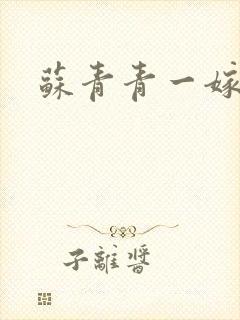 蘇青青一嫁
子離醬